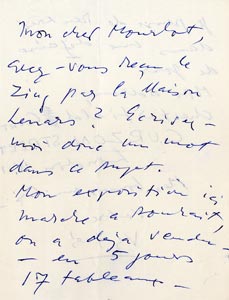 Mon cher Mourlot,
avez-vous reçu le
Zinc par la Maison
Lenars ? Ecrivez-
moi donc un mot
dans ce sujet.
Mon exposition ici
marche à souhait,
on a déjà vendu -
- en 5 jours
17 tableaux -